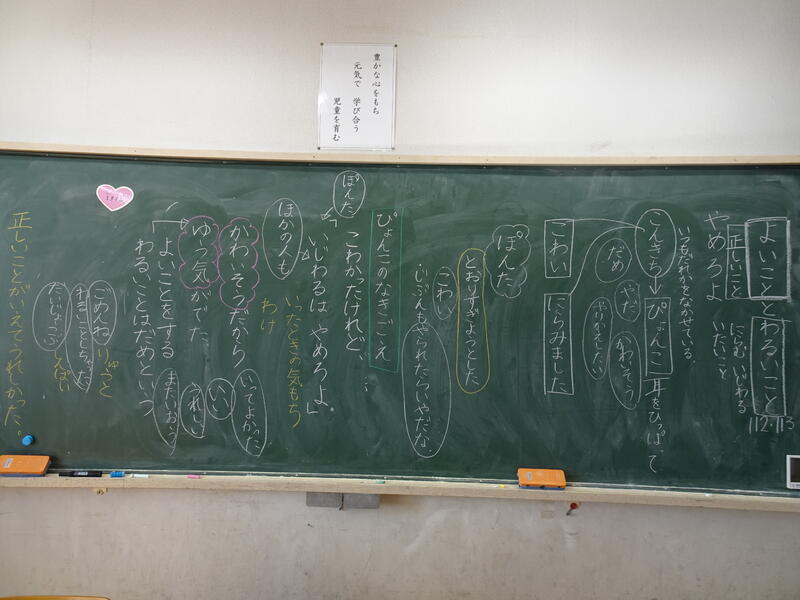 豊かな心をもち
元気で 学び合う
児童を育む
よいこととわるいこと
112.113
正しいこと にらむ いじわる
やめろよ いたいこと
いつもだれかをなかせている。
こんきち→ぴょんこ 耳をひっぱって
だめ
やだ
かわいそう
やりかえしたい
こわい
にらみました
ぽんた
とおりすぎよっとした
こわい
じぶんもやられたらいやだな。
ぴょんこのなきごえ
こわかったけれど、
ぽんた
いじわるは やめろよ。」
いったときの気もち
わけ
ほかの人も
かわいそうだから
ゆう気がでた。
よいことをする
わるいことはだめという
いってよかった
いい
うれしい
またいおう
ごめんね
りゅうと
わるいことしちゃった
だいじょうぶ
しんぱい
正しいことがいえてうれしかった。